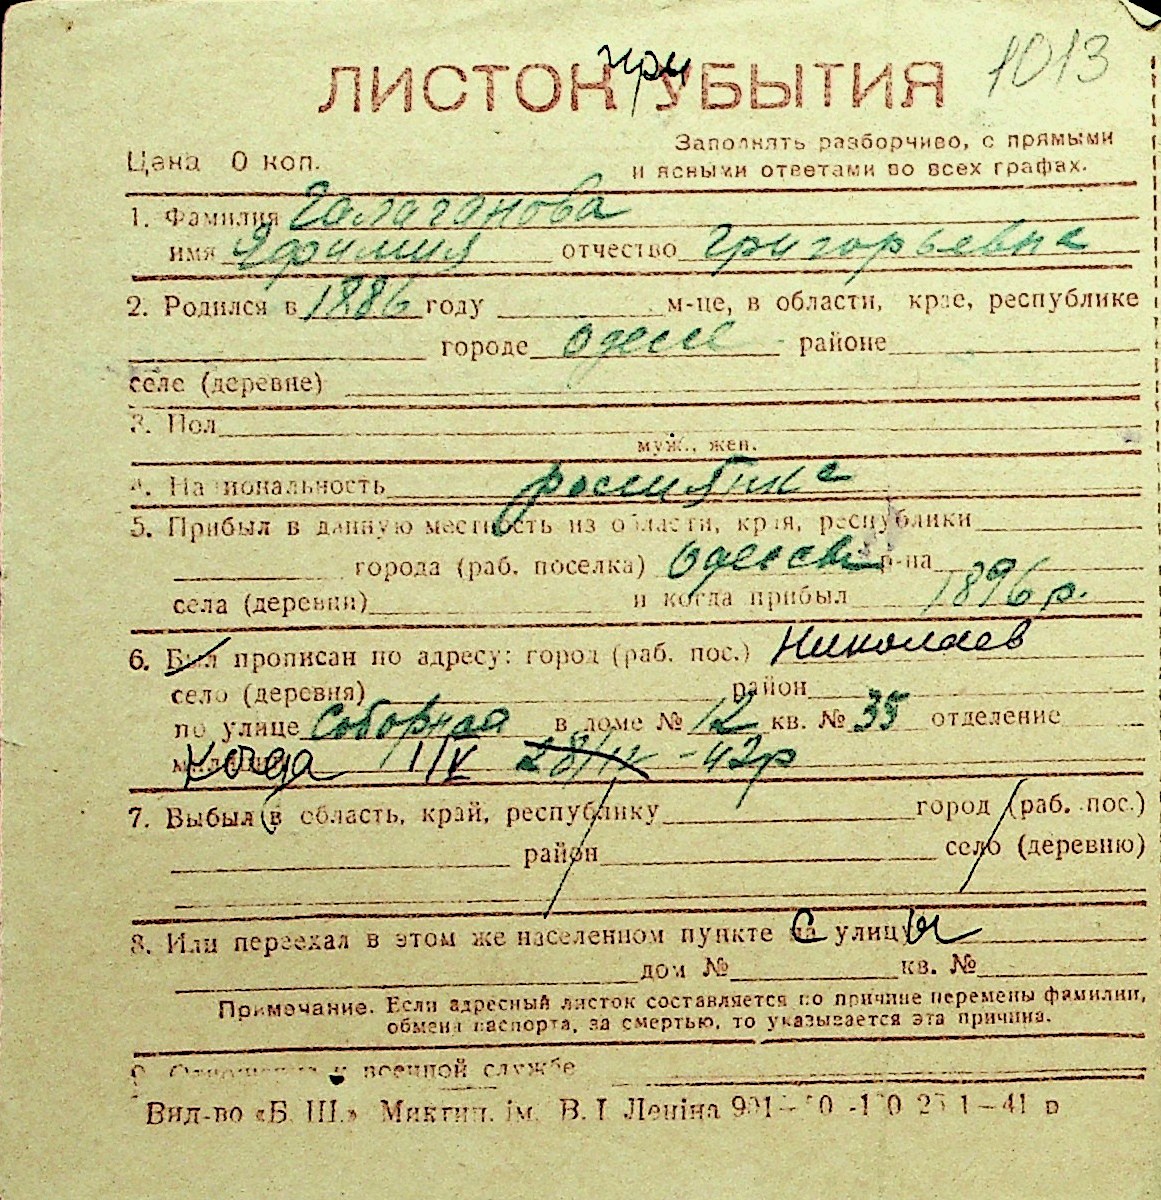 ЛИСТОК при УБЫТИЯ 1013
Цена 0 коп. Заполнять разборчиво, с прямыми
и ясными ответами во всех графах.
1. Фамилия Галаганова
имя Ефимия отчество Григорьевна
2. Родился в 1886 году м-це, в области, крае, республике
городе Одесе районе
селе (деревне)
3. Пол
муж., жен.
4. Национальность
5. Прибыл в данную местность из области, края, республики
города (раб. поселка) Одессы р-на
села (деревни) и когда прибыл 1896 р.
6. Был прописан по адресу: город (раб. пос.) Николаев
село (деревня) район
по улице Соборная в доме № 12 кв. № 35 отделение
когда 1/V 28/IV -42р
7. Выбыл в область, край, республику город (раб. пос.)
район село (деревню)
8. Или переехал в этом же населенном пункте с улицы
дом № кв. №
Примечание. Если адресный листок составляется по причине перемены фамилии,
обмена паспорта, за смертью, то указывается эта причина.
9. Отношение к военной службе
Вид-во «Б. Ш.» Микгип. ім. В. І. Леніна